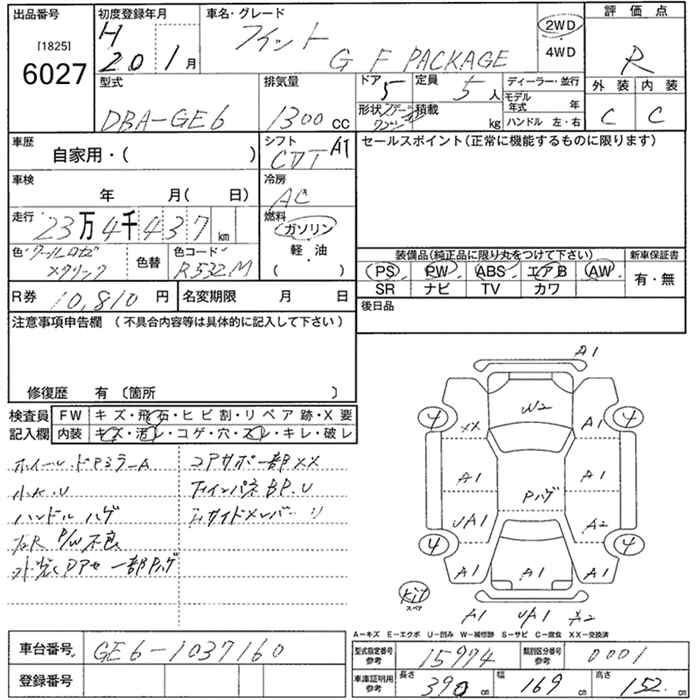 出品番号 初度登録年月 車名・グレード 評価点
[1825] 6027
H 20 1月
フィット G F PACKAGE
2WD
4WD
R
型式 DBA-GE6
排気量 1300 CC
ドア 5 定員 5人
形状 積載 kg
ディーラー・並行
モデル年式 年
ハンドル 左・右
外装 内装
C C
車歴 自家用・( )
シフト CVT AT
セールスポイント(正常に機能するものに限ります)
車検 年 月( 日)
冷房 AC
走行 23万4千437km
燃料 ガソリン
軽・油
( )
色 色替 色コード R532M
装備品(純正品に限り丸をつけて下さい) 新車保証書
PS PW ABS エアB AW 有・無
SR ナビ TV カワ
R券 10,810円 名変期限 月 日
後日品
注意事項申告欄 (不具合内容等は具体的に記入して下さい)
修復歴 有 〔箇所 〕
検査員 FW キズ・飛石・ヒビ割・リペア跡・X要
記入欄 内装 キズ・汚レ・コゲ・穴・スレ・キレ・破レ
ホイール・ドアミラーA コアサポ一部XX
小A.U
ハンドル ハゲ
P/W不良
A1
W2
4 XX A1 4
A1 PハゲA1
UA1 A2
4 4
A1 A1 A1
kit
スペア
A1 UA1 X2
A-キズ E-エクボ U-凹み W-補修跡 S-サビ C-腐食 XX-交換済
車台番号 GE6-1037160
型式指定番号 参考 15974 類別区分番号 参考 0001
登録番号
車庫証明用 参考 長さ 390cm 幅 169cm 高さ 152cm